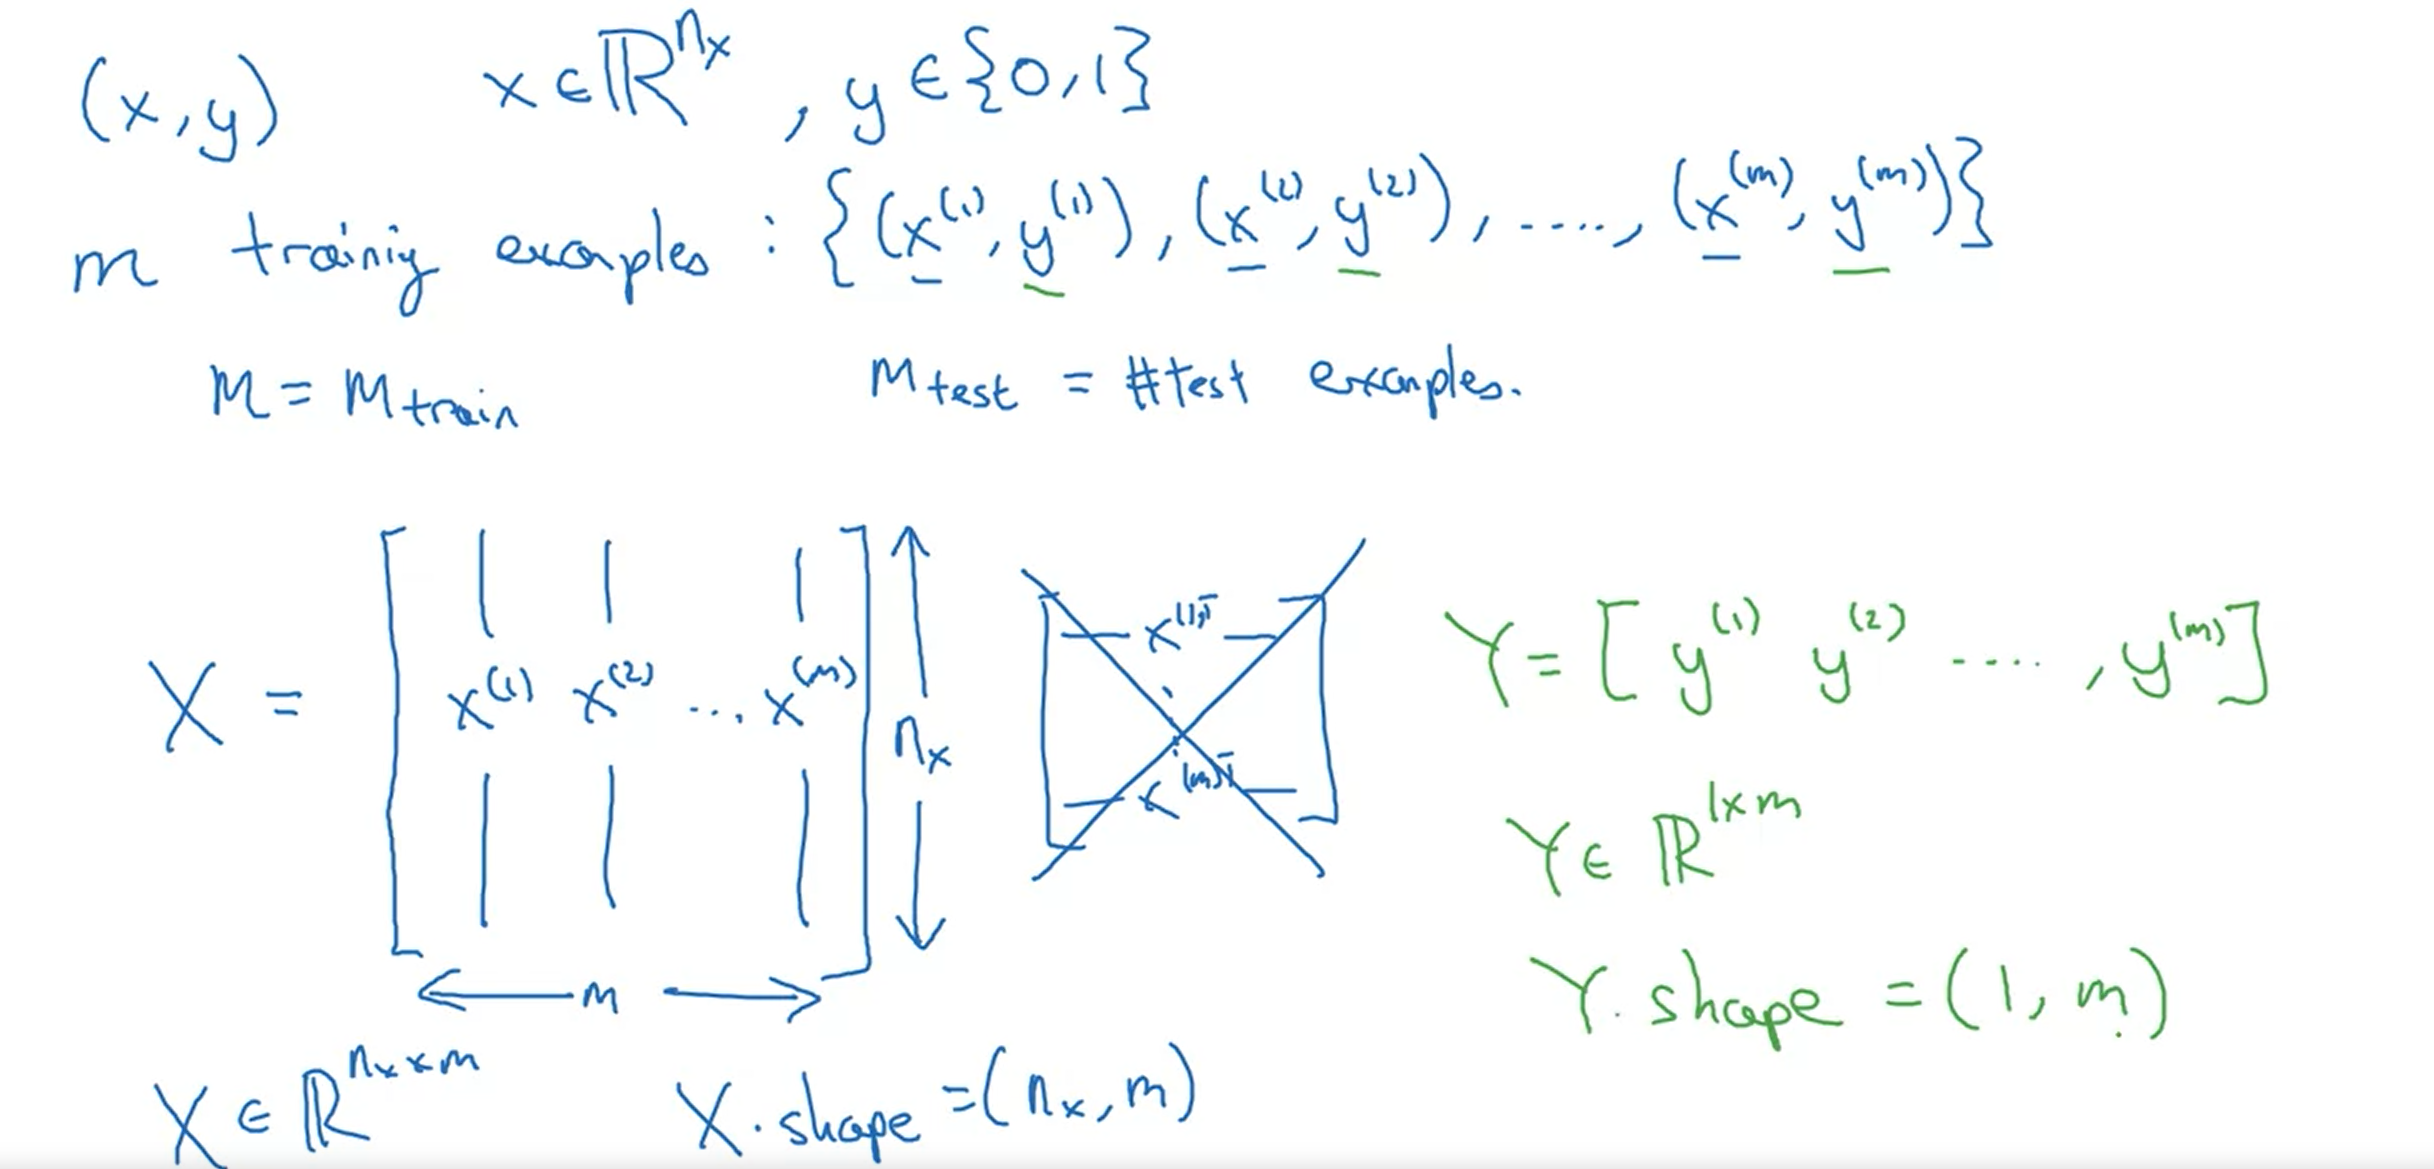 (x,y) x ∈ ℝ^{n_x} , y ∈ {0,1}
m trainig examples : {(x^{(1)}, y^{(1)}), (x^{(2)}, y^{(2)}), ....., (x^{(m)}, y^{(m)})}
M = M_{train} M_{test} = #test examples.
X = [x^{(1)} x^{(2)} ... x^{(m)}] n_x
m
x^{(1)T}
⋮
x^{(m)T}
Y = [y^{(1)} y^{(2)} ...., y^{(m)}]
Y ∈ ℝ^{1×m}
Y.shape = (1, m)
X ∈ ℝ^{n_x × m} X.shape = (n_x, m)